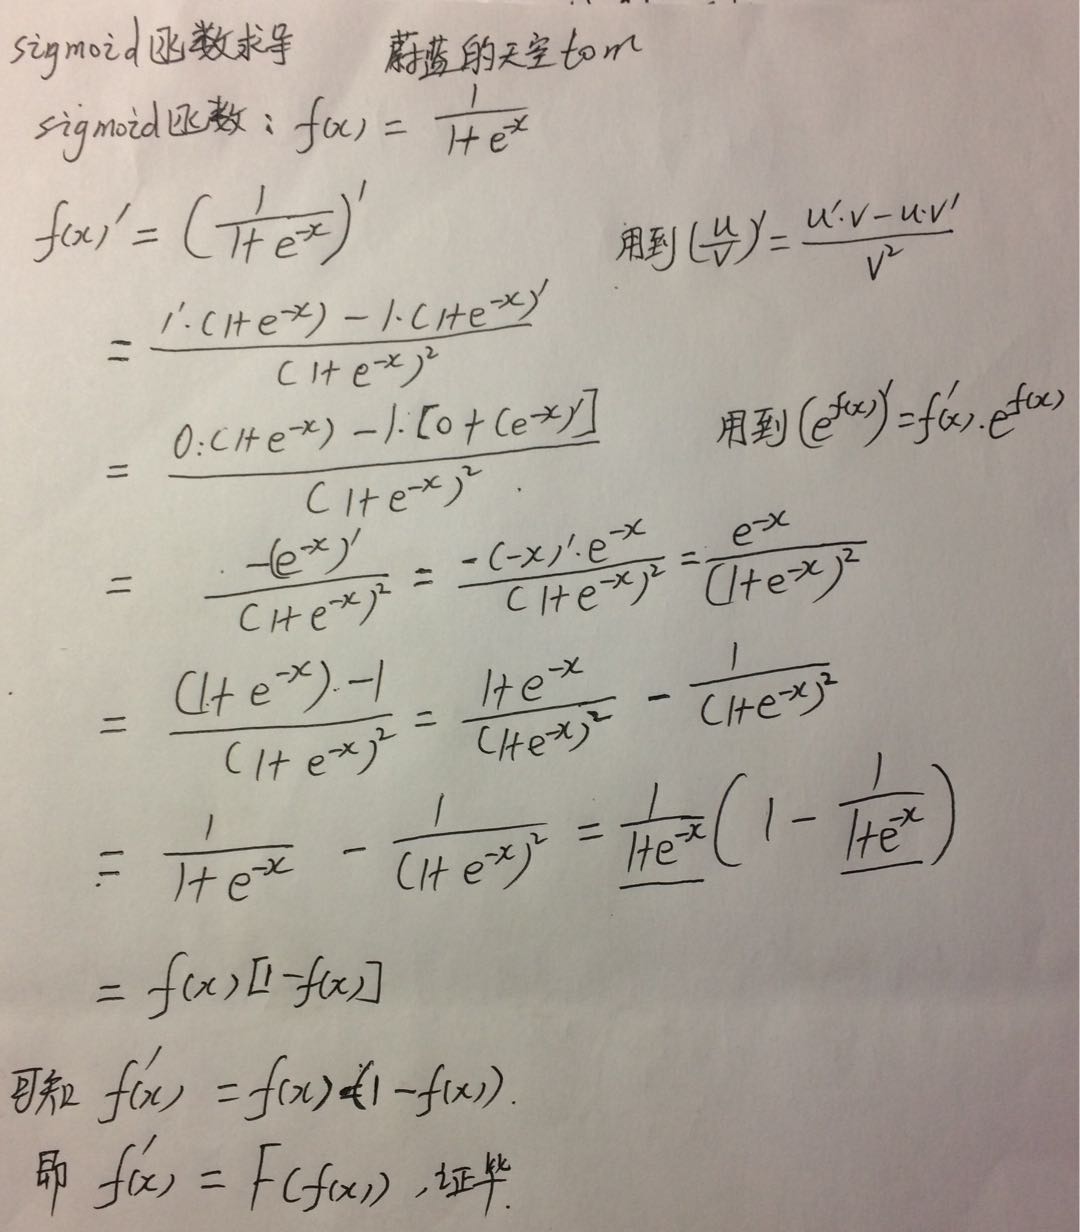 sigmoid函数求导 蔚蓝的天空tom
sigmoid函数: f(x) = 1/(1+e^{-x})
f(x)' = (1/(1+e^{-x}))' 用到 (u/v)' = (u'·v-u·v')/v^2
= (1'·(1+e^{-x}) - 1·(1+e^{-x})')/(1+e^{-x})^2
= (0·(1+e^{-x}) - 1·[0+(e^{-x})'])/(1+e^{-x})^2 用到 (e^{f(x)})' = f'(x)·e^{f(x)}
= -(e^{-x})'/(1+e^{-x})^2 = -(-x)'·e^{-x}/(1+e^{-x})^2 = e^{-x}/(1+e^{-x})^2
= ((1+e^{-x})-1)/(1+e^{-x})^2 = (1+e^{-x})/(1+e^{-x})^2 - 1/(1+e^{-x})^2
= 1/(1+e^{-x}) - 1/(1+e^{-x})^2 = 1/(1+e^{-x}) (1 - 1/(1+e^{-x}))
= f(x)[1-f(x)]
可知 f'(x) = f(x)(1-f(x)).
即 f'(x) = F(f(x)), 证毕.